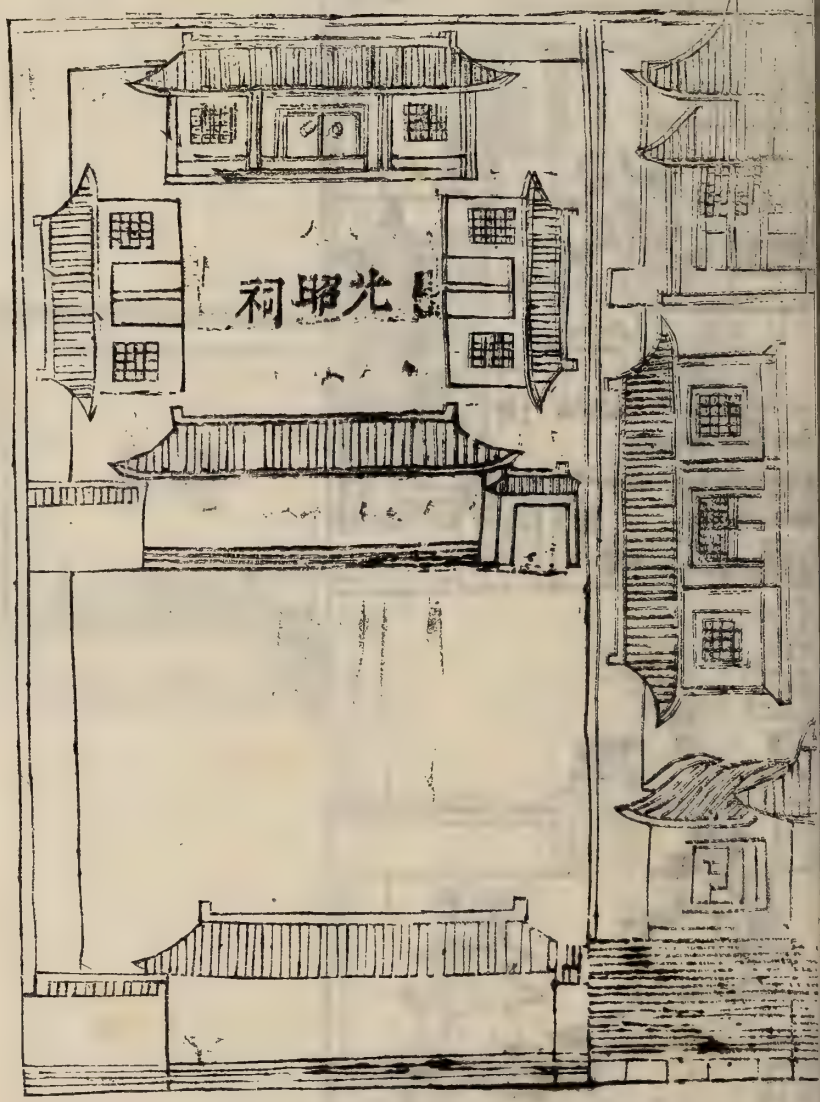 光昭祠